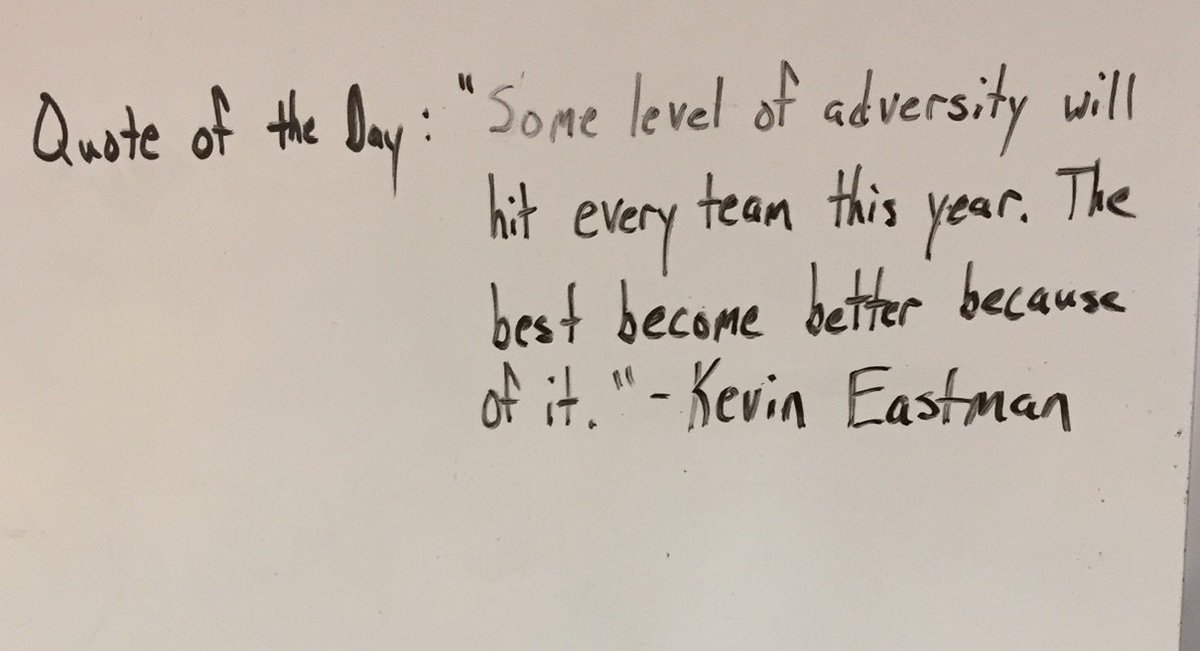 Quote of the Day: "Some level of adversity will
hit every team this year. The
best become better because
of it." - Kevin Eastman